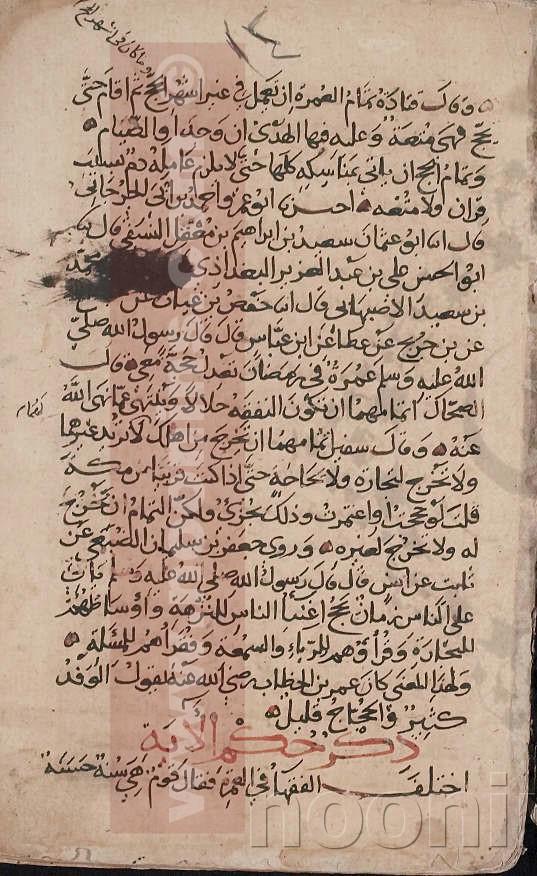 وما كان في أشهر الحج
وقال قتادة تمام العمرة ان تعمل في غير اشهر الحج ثم اقام حتى
يحج فهى متعة وعليه فيها الهدى ان وجد او الصيام
وتمام الحج ان ياتي بمناسكه كلها حتى لا يلزم عامله دم بسبب
قران ولا متعة اخبرنا ابو عمر واحمد بن ابي الجرجاني
قال انا ابو عثمان سعيد بن ابراهيم بن معقل النسفي قال
ابو الحسن علي بن عبد العزيز محمد
بن سعيد الاصبهاني قال انا حفص بن غياث عن
عن بن جريج عن عطا عن ابن عباس قال قال رسول الله صلى
الله عليه وسلم عمرة في رمضان تعدل حجة معي قال
الضحاك اتمامهما ان تكون النفقة حلالا وينتهى عما نهى الله
اتمام
عنه وقال سفين اتمامهما ان تخرج من اهلك لا تريد غيرهما
ولا تخرج لتجارة ولا لحاجة حتى اذا كنت قريبا من مكة
قلت لو حججت او اعتمرت وذلك يجزئ ولكن التمام ان تخرج
له ولا تخرج لغيره وروى جعفر بن سليمان الضبعي عن
ثابت عن انس قال قال رسول الله صلى الله عليه وسلم يات
على الناس زمان يحج اغنيا الناس للنزهة واوساطهم
للتجارة وقراؤهم للرياء والسمعة وفقراهم للمسلة
ولهذا المعنى كان عمر بن الخطاب رضي الله عنه يقول الوفد
كثير والحجاج قليل
ذكر حكم الآية
اختلف الفقها في العمرة فقال قوم هى سنة حسنة
noonir